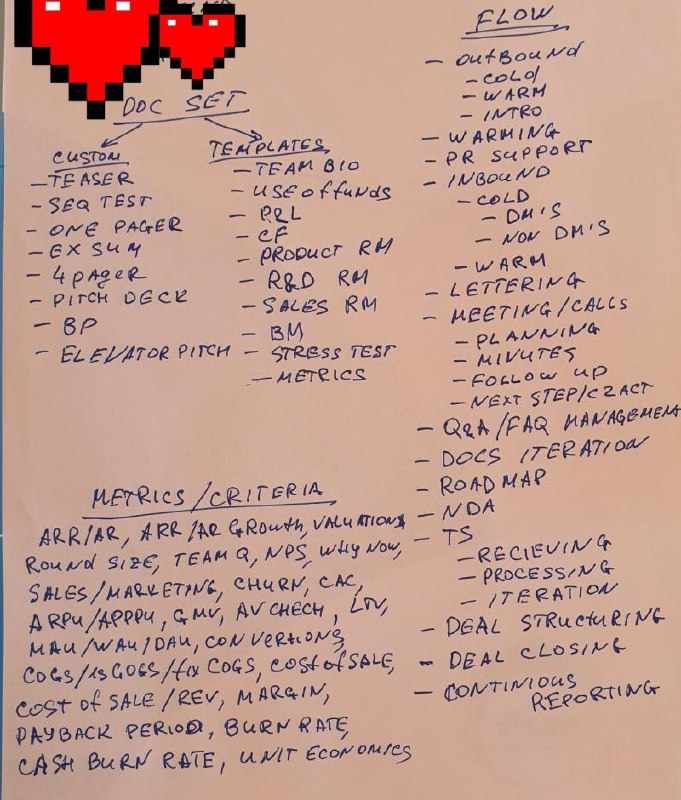 DOC SET
CUSTOM
- TEASER
- SEQ TEST
- ONE PAGER
- EX SUM
- 4 PAGER
- PITCH DECK
- BP
- ELEVATOR PITCH
TEMPLATES
- TEAM BIO
- USE OF FUNDS
- P&L
- CF
- PRODUCT RM
- R&D RM
- SALES RM
- BM
- STRESS TEST
- METRICS
METRICS/CRITERIA
ARR/AR, ARR/AR GROWTH, VALUATIONS
ROUND SIZE, TEAM Q, NPS, WHY NOW,
SALES/MARKETING, CHURN, CAC,
ARPU/APPPU, GMV, AV CHECH, LTV,
MAU/WAU/DAU, CONVERSIONS,
COGS/ GOGS/fix COGS, COST of SALE,
COST OF SALE/REV, MARGIN,
PAYBACK PERIOD, BURN RATE,
CASH BURN RATE, UNIT ECONOMICS
FLOW
- OUTBOUND
- COLD
- WARM
- INTRO
- WARMING
- PR SUPPORT
- INBOUND
- COLD
- DM'S
- NON DM'S
- WARM
- LETTERING
- MEETING/CALLS
- PLANNING
- MINUTES
- FOLLOW UP
- NEXT STEP/C2ACT
- Q&A/FAQ MANAGEMENT
- DOCS ITERATION
- ROADMAP
- NDA
- TS
- RECIEVING
- PROCESSING
- ITERATION
- DEAL STRUCTURING
- DEAL CLOSING
- CONTINIOUS
REPORTING